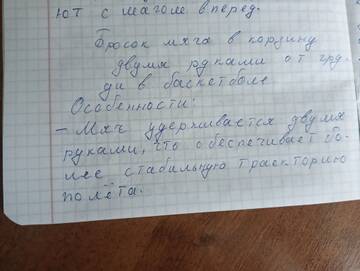 ют с шагом вперед.
Бросок мяча в корзину
двумя руками от гру-
ди в баскетболе
Особенности:
- Мяч удерживается двумя
руками, что обеспечивает бо-
лее стабильную траекторию
полёта.